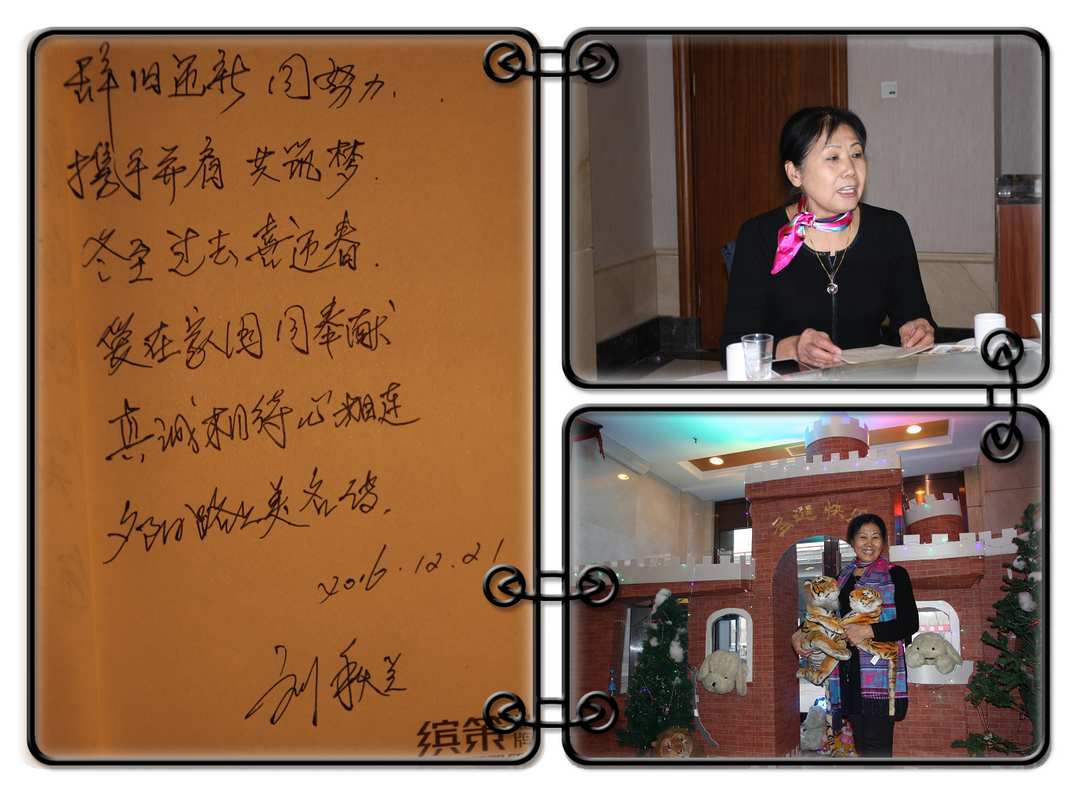 辞旧迎新 同努力.
携手并肩 共筑梦.
冬至过去喜迎春.
爱在家国同奉献
真诚相待心相连
夕阳路上美名传.
2016.12.21
刘秋兰
缤策牌
圣诞快